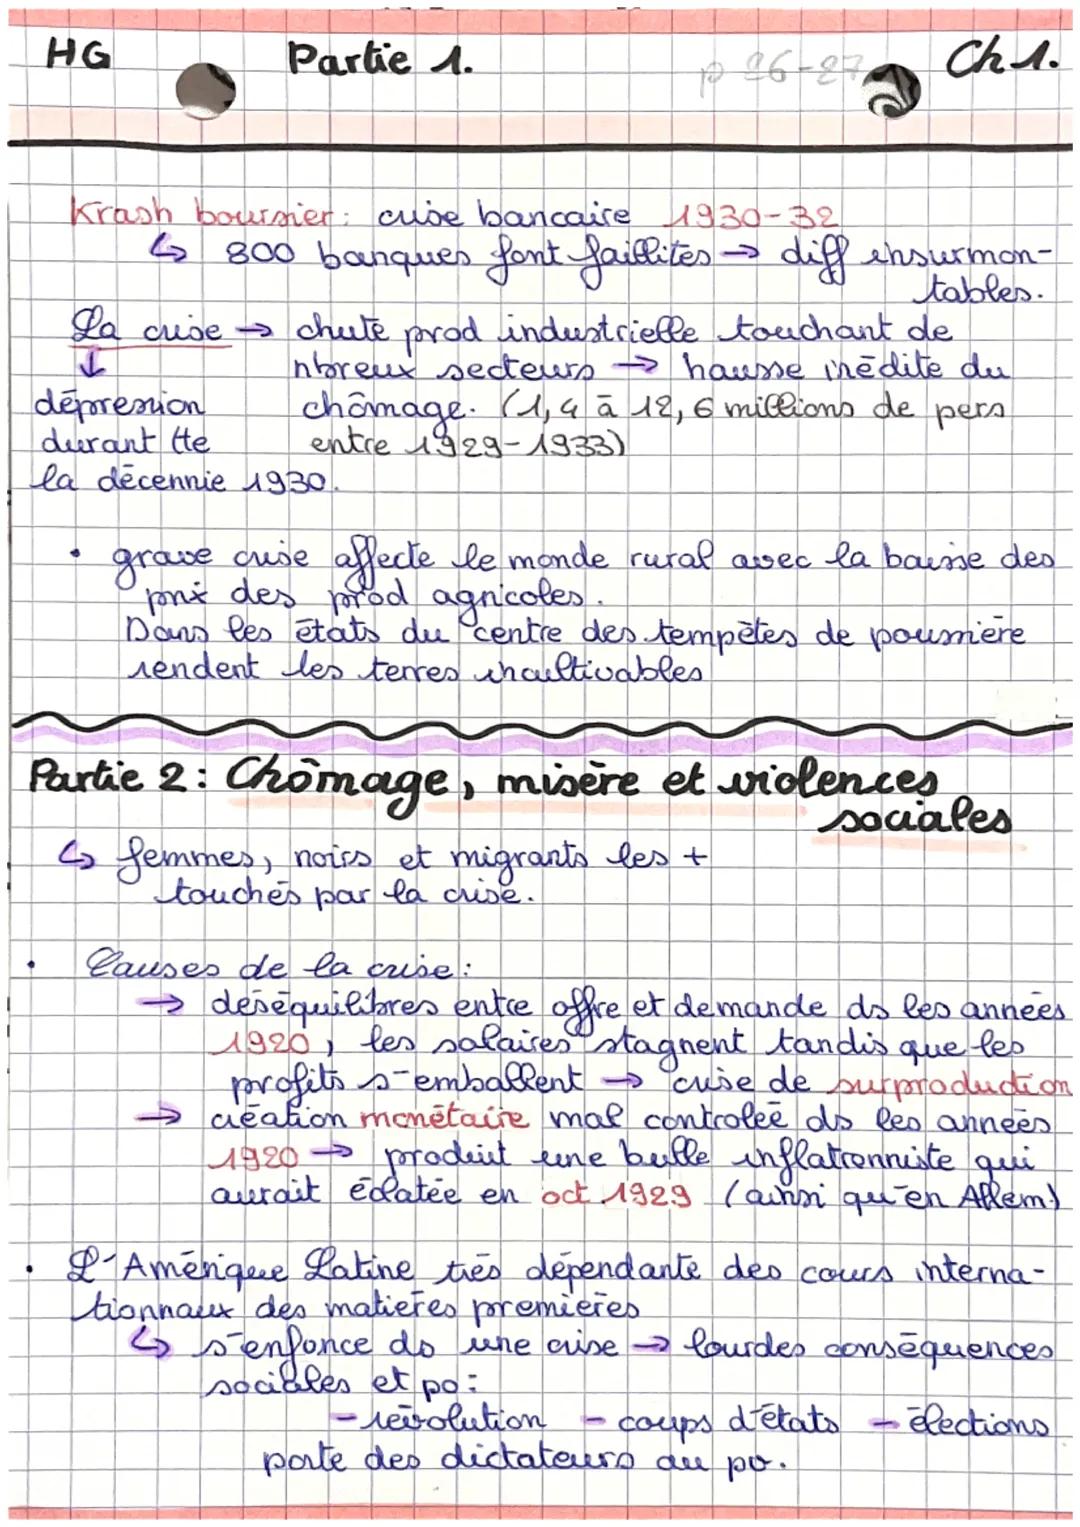 HG Partie 1. p 26-27 Ch 1.
Krash boursier: crise bancaire 1930-32
↳ 800 banques font faillites → diff insurmon-
tables.
La crise → chute prod industrielle touchant de
↓ nbreux secteurs → hausse inédite du
dépression chômage. (1,4 à 12,6 millions de pers
durant tte entre 1929-1933)
la décennie 1930.
• grave crise affecte le monde rural avec la baisse des
prix des prod agricoles.
Dans les états du centre des tempêtes de poussière
rendent les terres incultivables
Partie 2: Chômage, misère et violences
sociales
↳ femmes, noirs et migrants les +
touchés par la crise.
• Causes de la crise:
→ déséquilibres entre offre et demande ds les années
1920, les salaires stagnent tandis que les
profits s'emballent → crise de surproduction
→ création monétaire mal controleé ds les années
1920 → produit une bulle inflationniste qui
aurait éclatée en oct 1929 (ainsi qu'en Allem.)
• L'Amérique Latine très dépendante des cours interna-
tionnaux des matières premières
↳ s'enfonce ds une crise → lourdes conséquences
sociales et po:
- révolution - coups d'états - élections
porte des dictateurs au po.